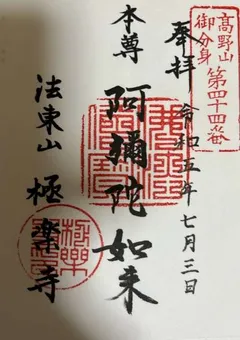 高野山
御分身
第四十四番
奉拝
令和五年七月三日
本尊
阿彌陀如来
法東山
極楽寺